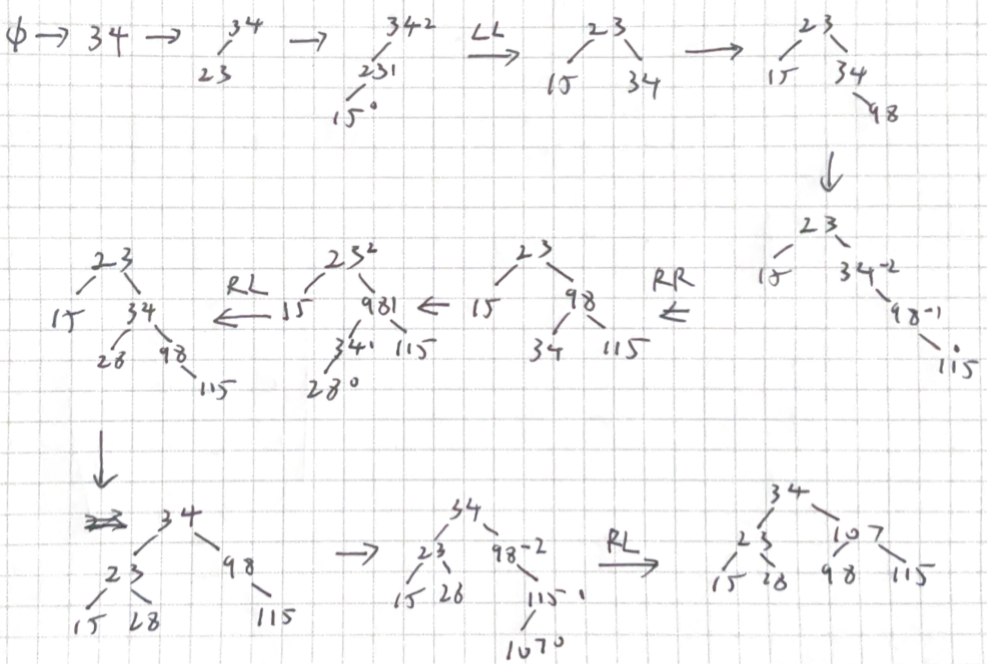 ϕ → 34 → 34 → 34² LL→ 23 → 23
23 23¹ 15 34 15 34
15⁰ 98
↓
23
15 34⁻²
98⁻¹
115
RR ←
23
15 98
34 115
←
23²
15 98¹
34¹ 115
28⁰
RL ←
23
15 34
28 98
115
↓
34
23 98
15 28 115
→
34
23 98⁻²
15 28 115¹
107⁰
RL →
34
23 107
15 28 98 115